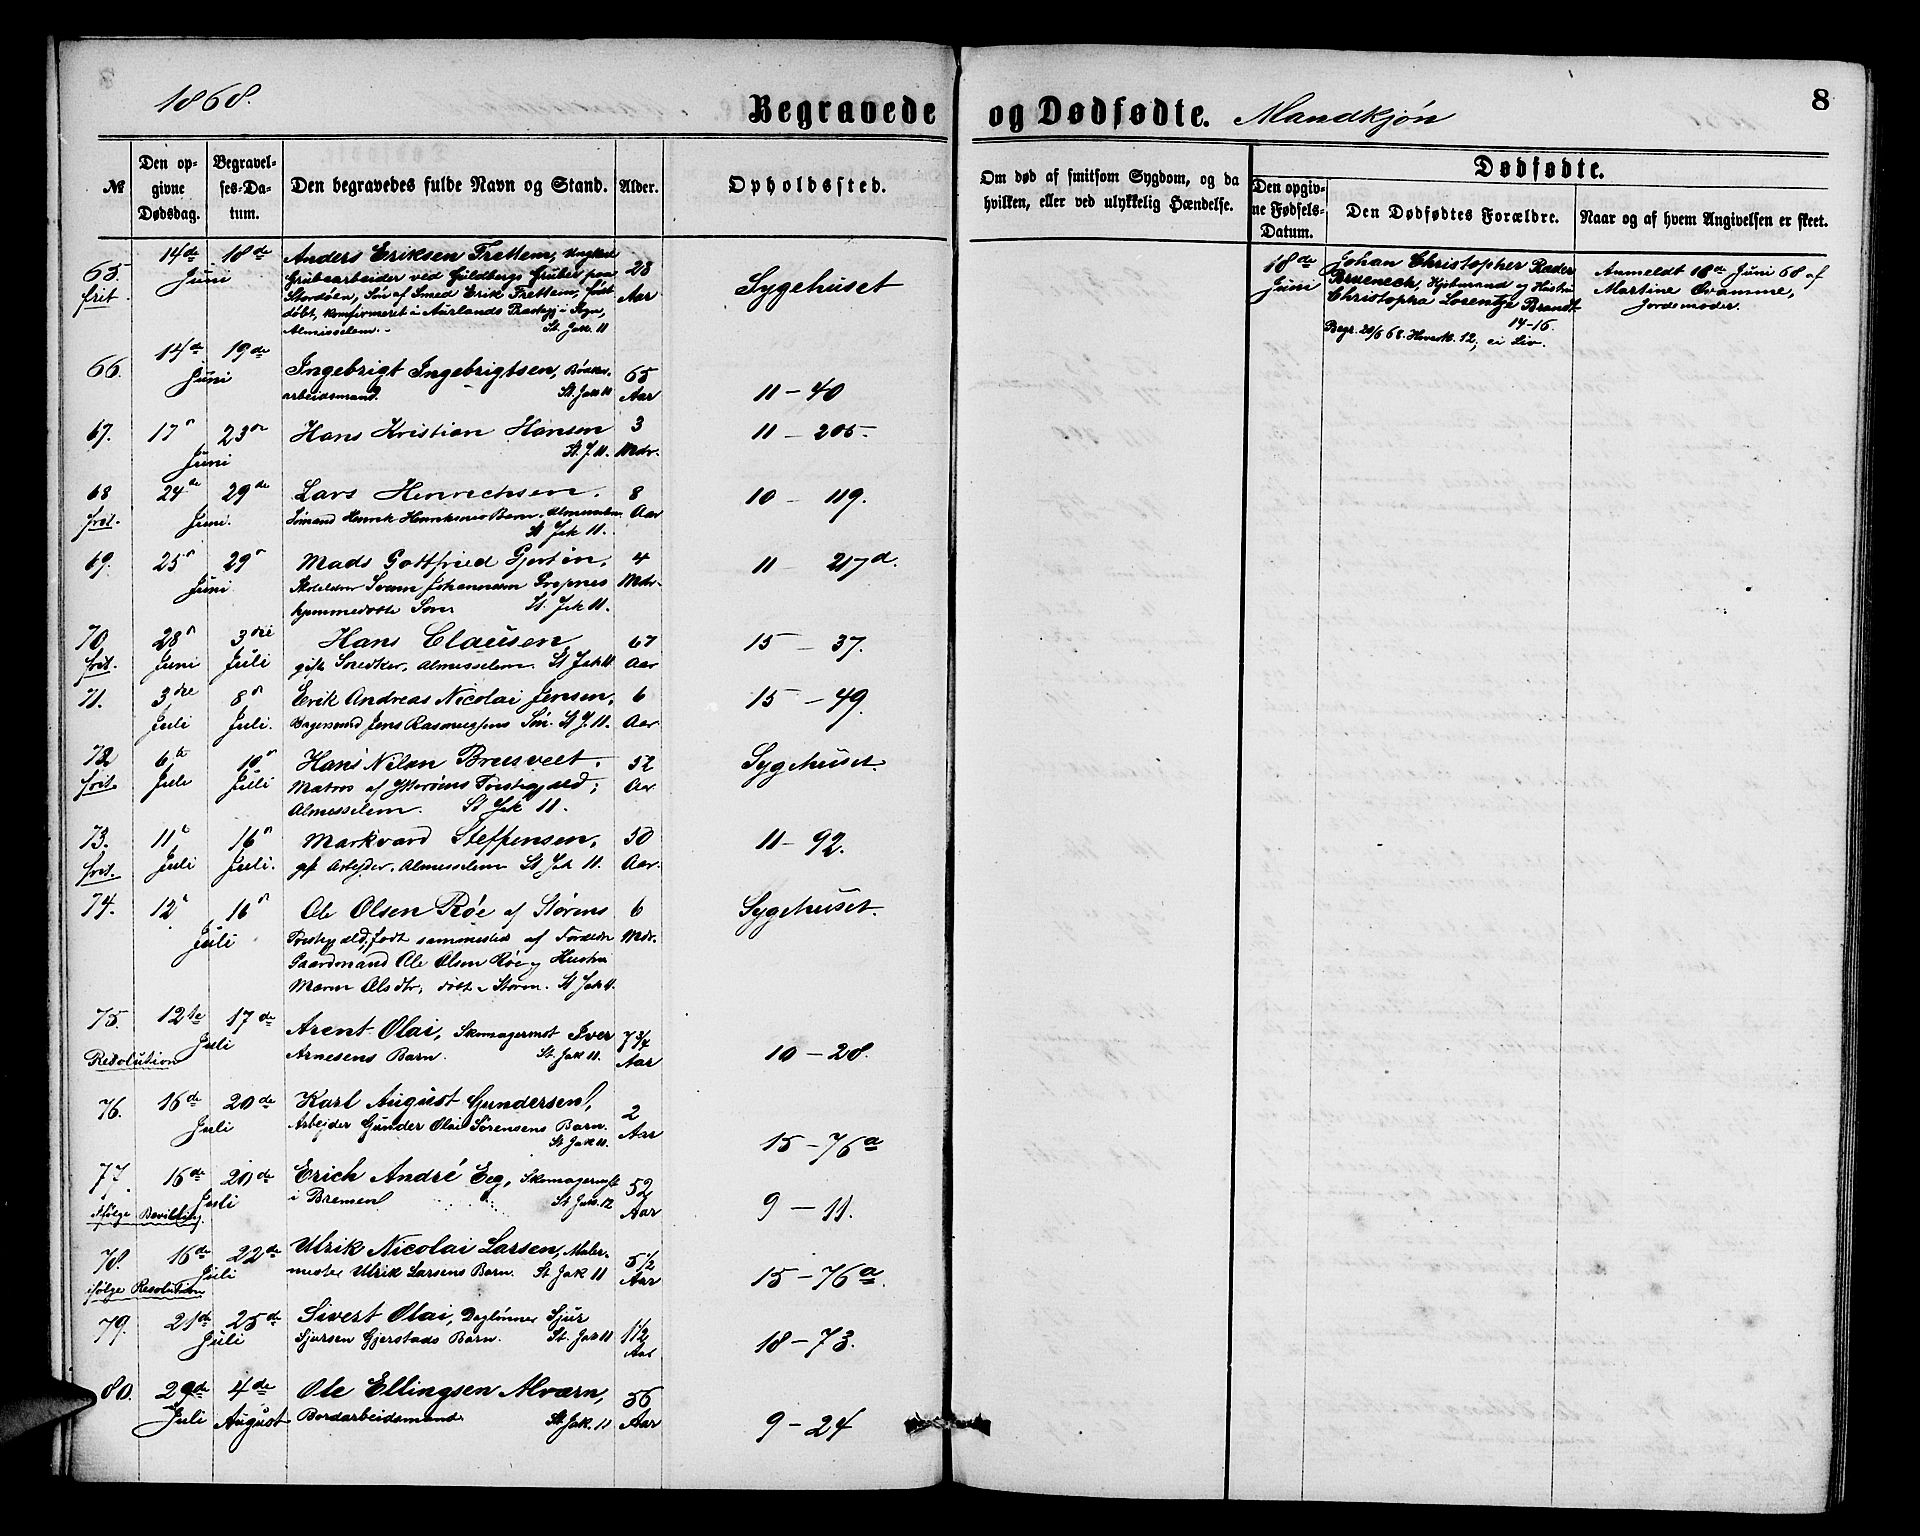 1868.
Begravede og Dødfødte. Mandkjøn
8
№
Den opgivne Dødsdag.
Begravelses-Datum.
Den begravedes fulde Navn og Stand.
Alder.
Opholdssted.
Om død af smitsom Sygdom, og da hvilken, eller ved ulykkelig Hændelse.
Dødfødte.
Den opgivne Fødsels-Datum.
Den Dødfødtes Forældre.
Naar og af hvem Angivelsen er skeet.
65. 14de 18de Anders Eriksen Frettem, Ungkarl
frit. Juni Grubearbeider ved Guldbergs Gruber paa 28 Sygehuset
Stordøen, Søn af Smed Erik Frettem, født Aar
døbt, konfirmeret i Aurlands Præstegj. i Sogn,
Almisselem. St. Jak. 11
18de Johan Christopher Rader
Juni Brueneck, Hjulmand og Hustru
Christopha Lorentze Brandt
14-16.
Begr. 20/6 68. Hovedk. 12, ei Liv.
Anmeldt 18de Juni 68 af
Martine Qvamme,
Jordemoder.
66. 14de 19de Ingebrigt Ingebrigtsen, 65 11 – 40
Juni arbeidsmand St. Jak 11 Aar
67. 17de 23de Hans Kristian Hansen 3 11 – 205.
Juni St. J. 11. Mdr.
68 24de 29de Lars Henrichsen. 8 10 – 119.
frit. Juni. Sømand Henrik Henriksens Barn. Almisselem Aar
St Jak 11.
69. 25 29 Mads Gottfried Gjertin, 4 11 – 217d.
Juni Svam Johannesen Mdr.
hjemmedøbte Søn St. Jak 11.
70 28 3die Hans Clausen 67 15 – 37.
frit. Juni Juli gift Snedker, Almisselem. St Jak 11. Aar
71. 3die 8 Erik Andreas Nicolai Jensen, 6 15 – 49.
Juli Juli. Bagersvend Jens Rasmussens Søn. St J. 11. Aar.
72 6te 10 Hans Nilsen Brusveet. 52 Sygehuset.
frit. Juli Juli Matros af Præstegjæld; Aar
Almisselem. St Jak 11.
73. 11 16 Markvard Steffensen, 50 11 – 92.
frit. Juli Juli. gift Arbejder. Almisselem St Jak 11. Aar.
74. 12 16 Ole Olsen Røe af Størens 6 Sygehuset.
Juli Præstegjæld, født sammesteds af Forældre Mdr.
Gaardmand Ole Olsen Røe og Hustru
Maren Olsdtr, døbt i Støren. St Jak 11.
75. 12te 17de Arent Olai, Skomagermst Iver 7 3/4
Juli
Resolution Arnesens Barn. St. Jak 11. Aar 10 – 28.
76. 16de 20de Karl August Gundersen, 2
Juli Arbejder Gunder Olai Sørensens Barn. Aar
St. Jak 11. 15 – 76a
77. 16de 20de Erich André Eeg, Skomagermst 52
Juli i Bremen St Jak. 12 Aar 9 – 11.
ifølge Bevilling.
78. 16de 22de Ulrik Nicolai Larsen, Maler- 5 1/2
Juli mester Ulrik Larsens Barn. St. Jak 11 Aar 15 – 76a.
ifølge Resolution
79. 21d 25de Sivert Olai, Daglønner Sjur 1 1/2
Juli Sjursen Gjerstads Barn. St. Jak 11 Aar 18 – 73.
80. 29d 4de Ole Ellingsen Alværn, 56
Juli August Bordarbeidsmand St. Jak. 11 Aar 9 – 24